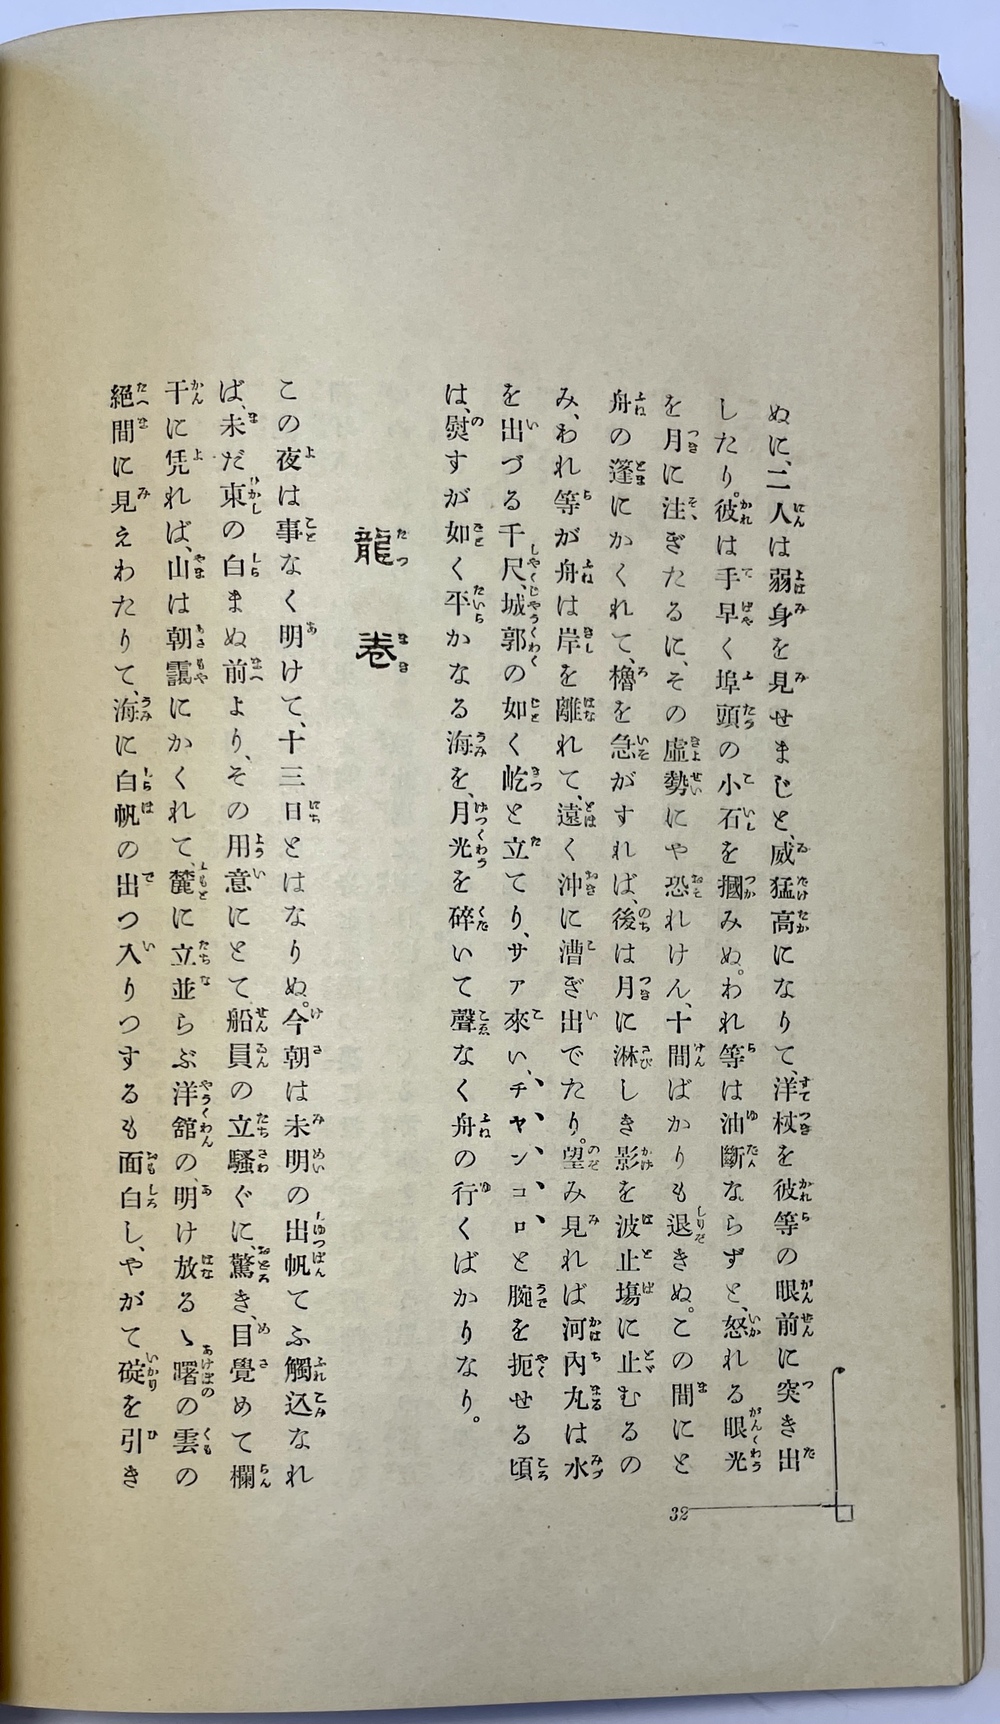 ぬに、二人は弱身を見せまじと、威猛高になりて、洋杖を彼等の眼前に突き出
したり。彼は手早く埠頭の小石を摑みぬ。われ等は油斷ならずと、怒れる眼光
を月に注ぎたるに、その虛勢にや恐れけん、十間ばかりも退きぬ。この間にと
舟の篷にかくれて、櫓を急がすれば、後は月に淋しき影を波止塲に止むるの
み、われ等が舟は岸を離れて、遠く沖に漕ぎ出でたり。望み見れば河內丸は水
を出づる千尺、城郭の如く屹と立てり、サア來い、チヤンコロと腕を扼せる頃
は、熨すが如く平かなる海を、月光を碎いて聲なく舟の行くばかりなり。
龍卷
この夜は事なく明けて、十三日とはなりぬ。今朝は未明の出帆てふ觸込なれ
ば、未だ東の白まぬ前より、その用意にとて船員の立騷ぐに、驚き、目覺めて欄
干に凭れば、山は朝靄にかくれて、麓に立並らぶ洋舘の、明け放るゝ曙の雲の
絕間に見えわたりて、海に白帆の出つ入りつするも面白し、やがて碇を引き
32